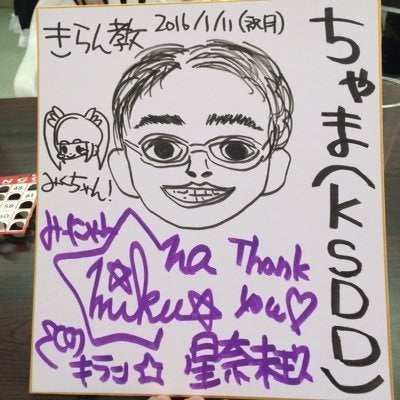 きらん教
2016/1/11(祝月)
ちゃま(KSDD)
みくちゃん!
みーたん
na Thank
miku☆ you♡
キラン☆
星奈未玖
48
61
58
60